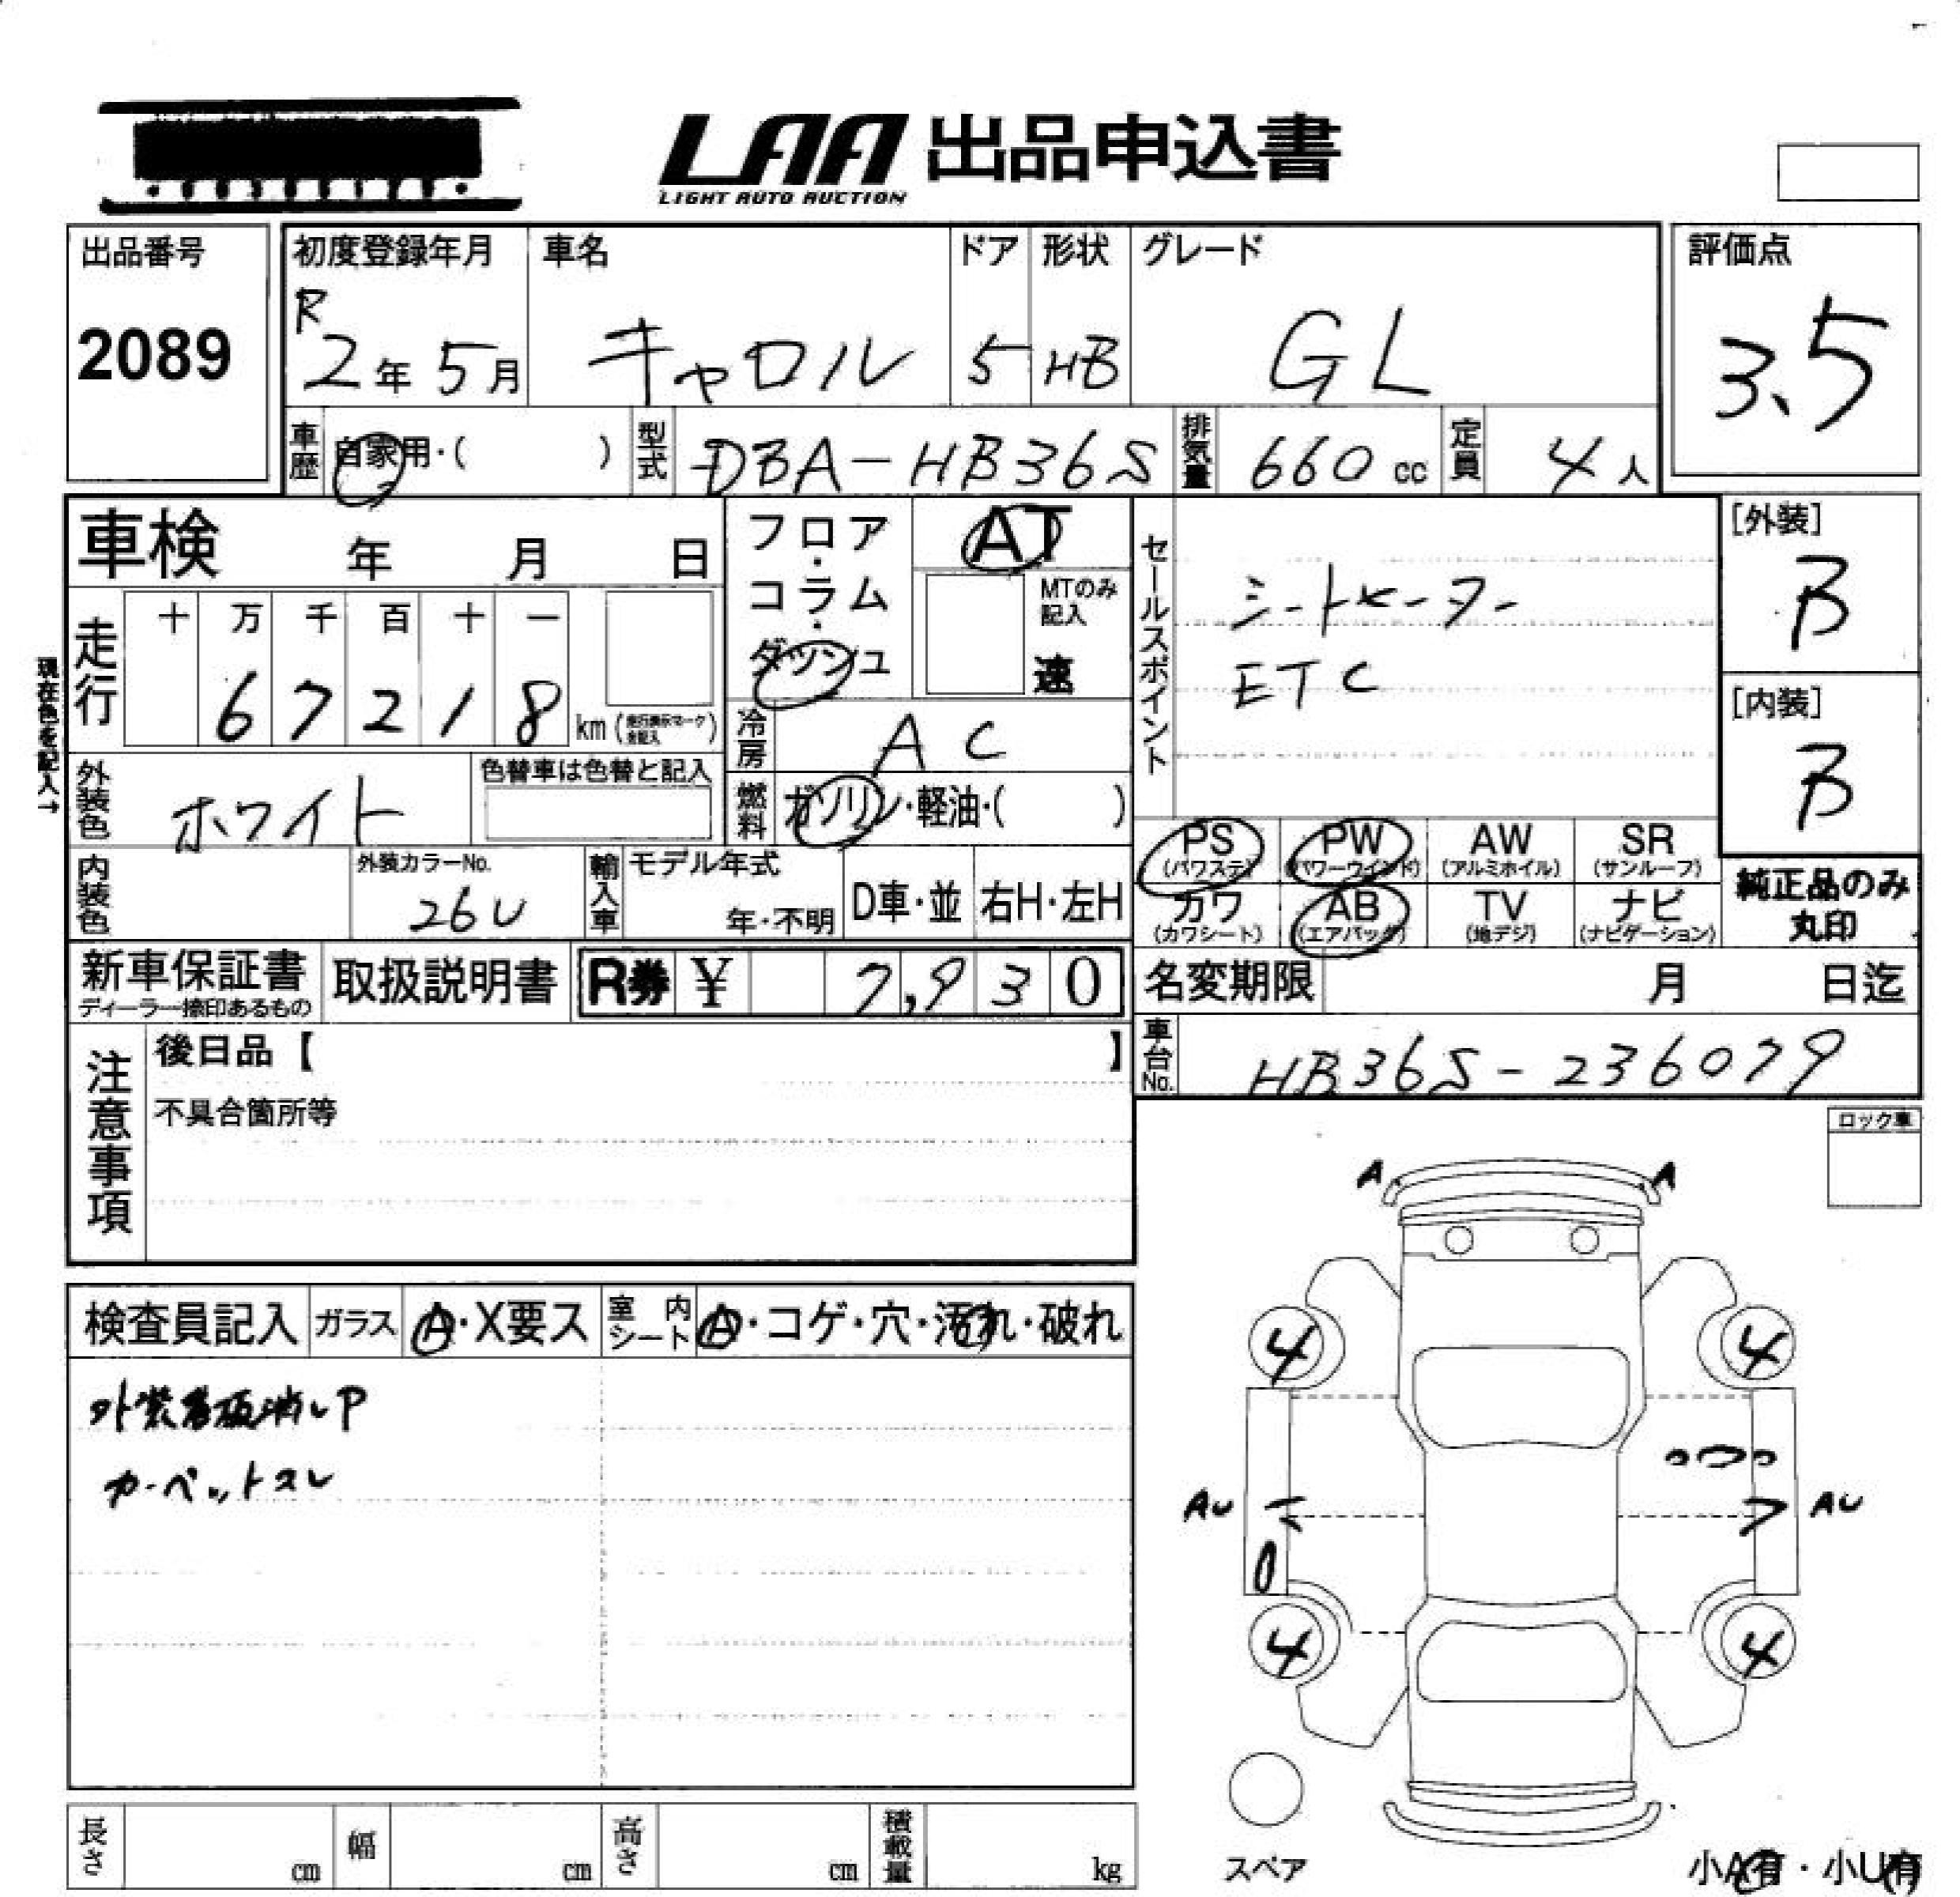 LAA 出品申込書
LIGHT AUTO AUCTION
出品番号
2089
初度登録年月
R
2年 5月
車名
キャロル
ドア
5
形状
HB
グレード
GL
評価点
3.5
車歴 自家用・( )
型式 DBA-HB36S
排気量 660 cc
定員 4人
車検 年 月 日
フロア・コラム・ダッシュ
AT
MTのみ記入
速
セールスポイント
シートヒーター
ETC
[外装]
B
[内装]
B
現在色を記入→
走行
十 万 千 百 十 一
6 7 2 1 8 km
冷房 AC
燃料 ガソリン・軽油・( )
外装色 ホワイト
色替車は色替と記入
内装色
外装カラーNo.
26U
輸入車
モデル年式
年・不明
D車・並
右H・左H
PS (パワステ)
PW (パワーウインド)
AW (アルミホイル)
SR (サンルーフ)
カワ (カワシート)
AB (エアバック)
TV (地デジ)
ナビ (ナビゲーション)
純正品のみ
丸印
新車保証書
ディーラー捺印あるもの
取扱説明書
R券 ¥ 7,930
名変期限 月 日迄
車台No. HB36S-236079
注意事項
後日品【 】
不具合箇所等
ロック車
A A
4 4
AU AU
4 4
検査員記入
ガラス A・X要ス
室内シート A・コゲ・穴・汚れ・破れ
外装看板消しP
カーペットスレ
長さ cm
幅 cm
高さ cm
積載量 kg
スペア
小A有・小U有